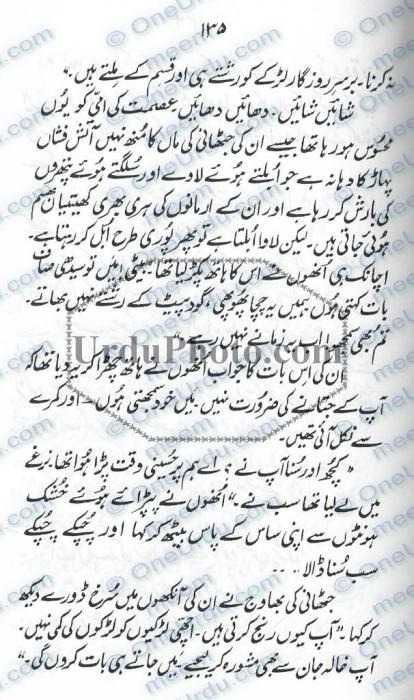 ۱۳۵
نہ کرنا۔ برسرِ روزگار لڑکے کو رشتے ہی اور قسم کے ملتے ہیں۔"
شائیں شائیں۔ دھائیں دھائیں۔ عصمت کی امّی کو یُوں
محسُوس ہو رہا تھا جیسے ان کی جٹھانی کی ماں کا مُنھ نہیں آتش فشاں
پہاڑ کا دہانہ ہے جو اُبلتے ہوئے لاوے اور سُلگتے ہوئے پتھروں
کی بارش کر رہا ہے اور ان کے ارمانوں کی ہری بھری کھیتیاں بھسم
ہوئی جاتی ہیں۔ لیکن لاوا اُبلتا ہے تو پھر پُوری طرح اُبل کر رہتا ہے۔
اچانک ہی انھوں نے اس کا ہاتھ پکڑ لیا تھا۔ بیٹی! میں تو سیدھی صاف
بات کہتی ہوں ہمیں یہ چچا پھوپھی، گود پیٹ کے رشتے نہیں بھاتے۔
تم بھی اب یہ زمانے نہیں رہے۔"
UrduPhoto.com
ان کی اس بات کا جواب انھوں نے ہاتھ چھڑا کر یہ دیا تھا کہ
آپ کے جتانے کی ضرورت نہیں۔ میں خود سمجھتی ہُوں — اور کمرے
سے نکل آئی تھیں۔
"کچھ اور سُنا آپ نے؟ اے ہم پر حُسینی وقت پڑا ہُوا تھا نرغے
میں لے لیا تھا سب نے۔" انھوں نے پپڑائے ہُوئے خُشک
ہونٹوں سے اپنی ساس کے پاس بیٹھ کر کہا اور چُپکے چُپکے
سب سُنا ڈالا ....
جٹھانی کی بھاوج نے ان کی آنکھوں میں سُرخ ڈورے دیکھ
کر کہا۔ "آپ کیوں رنج کرتی ہیں۔ اچھی لڑکیوں کو لڑکوں کی کمی نہیں۔
آپ خالہ جان سے بھی مشورہ کر لیجیے۔ میں جاتے ہی بات کروں گی۔"